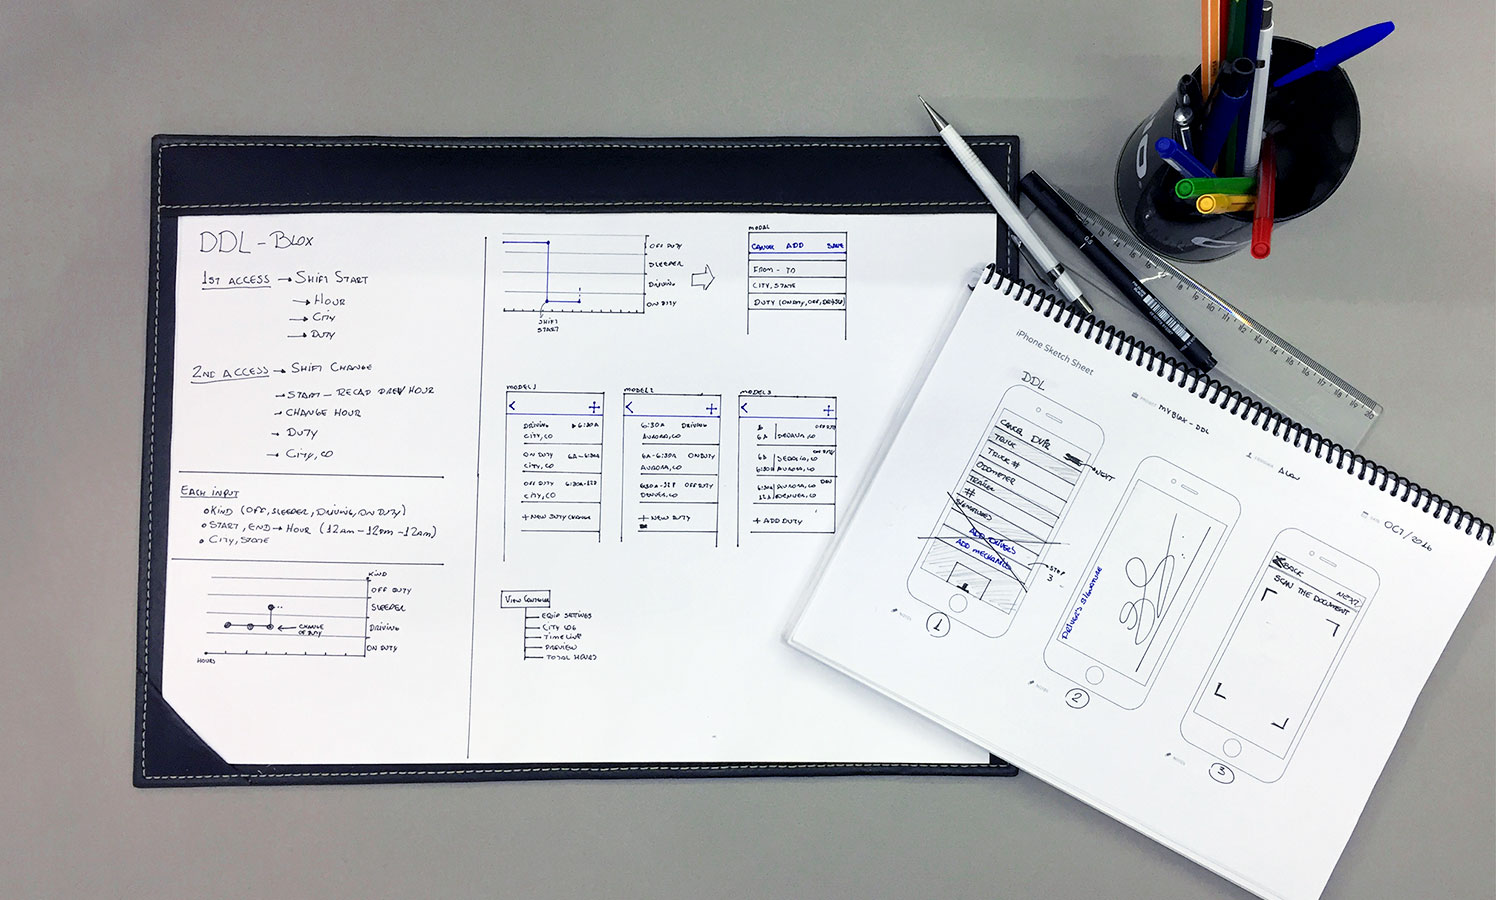 DDL - BLOX
1ST ACCESS → SHIFT START
→ HOUR
→ CITY
→ DUTY
2ND ACCESS → SHIFT CHANGE
→ START - RECAP PREV HOUR
→ CHANGE HOUR
→ DUTY
→ CITY, CO
EACH INPUT
KIND (OFF, SLEEPER, DRIVING, ON DUTY)
START, END → HOUR (12am - 12pm - 12am)
CITY, STATE
KIND
OFF DUTY
SLEEPER
DRIVING
ON DUTY
← CHANGE
OF DUTY
HOURS
OFF DUTY
SLEEPER
DRIVING
ON DUTY
SHIFT
START
MODAL
CANCEL ADD SAVE
FROM - TO
CITY, STATE
MODEL 1
DRIVING 6:30A
CITY, CO
ON DUTY 6A-6:30A
CITY, CO
OFF DUTY 6:30A-12P
CITY, CO
+ NEW DUTY CHANGE
MODEL 2
6:30A DRIVING
AURORA, CO
6A-6:30A ON DUTY
AURORA, CO
6:30A-12P OFF DUTY
DENVER, CO
+ NEW DUTY
MODEL 3
OFF DUTY
6A
ON DUTY
6A SEDALIA, CO
6:30A AURORA, CO
6:30A AURORA, CO
12A DENVER, CO
+ ADD DUTY
VIEW CONTAINER
EQUIP SETTINGS
CITY LOG
TIMELINE
PREVIEW
TOTAL HOURS
iPhone Sketch Sheet
PROJECT MYBLOX - DDL
ALAN
DATE OCT/2016
DDL
CANCEL DVIR
NEXT
TRUCK
TRUCK #
ODOMETER
TRAILER
#
SIGNATURES
ADD DRIVER'S
ADD MECHANIC'S
STEP
3
NOTES
1
DRIVER'S SIGNATURE
NOTES
2
BACK NEXT
SCAN THE DOCUMENT
NOTES
3